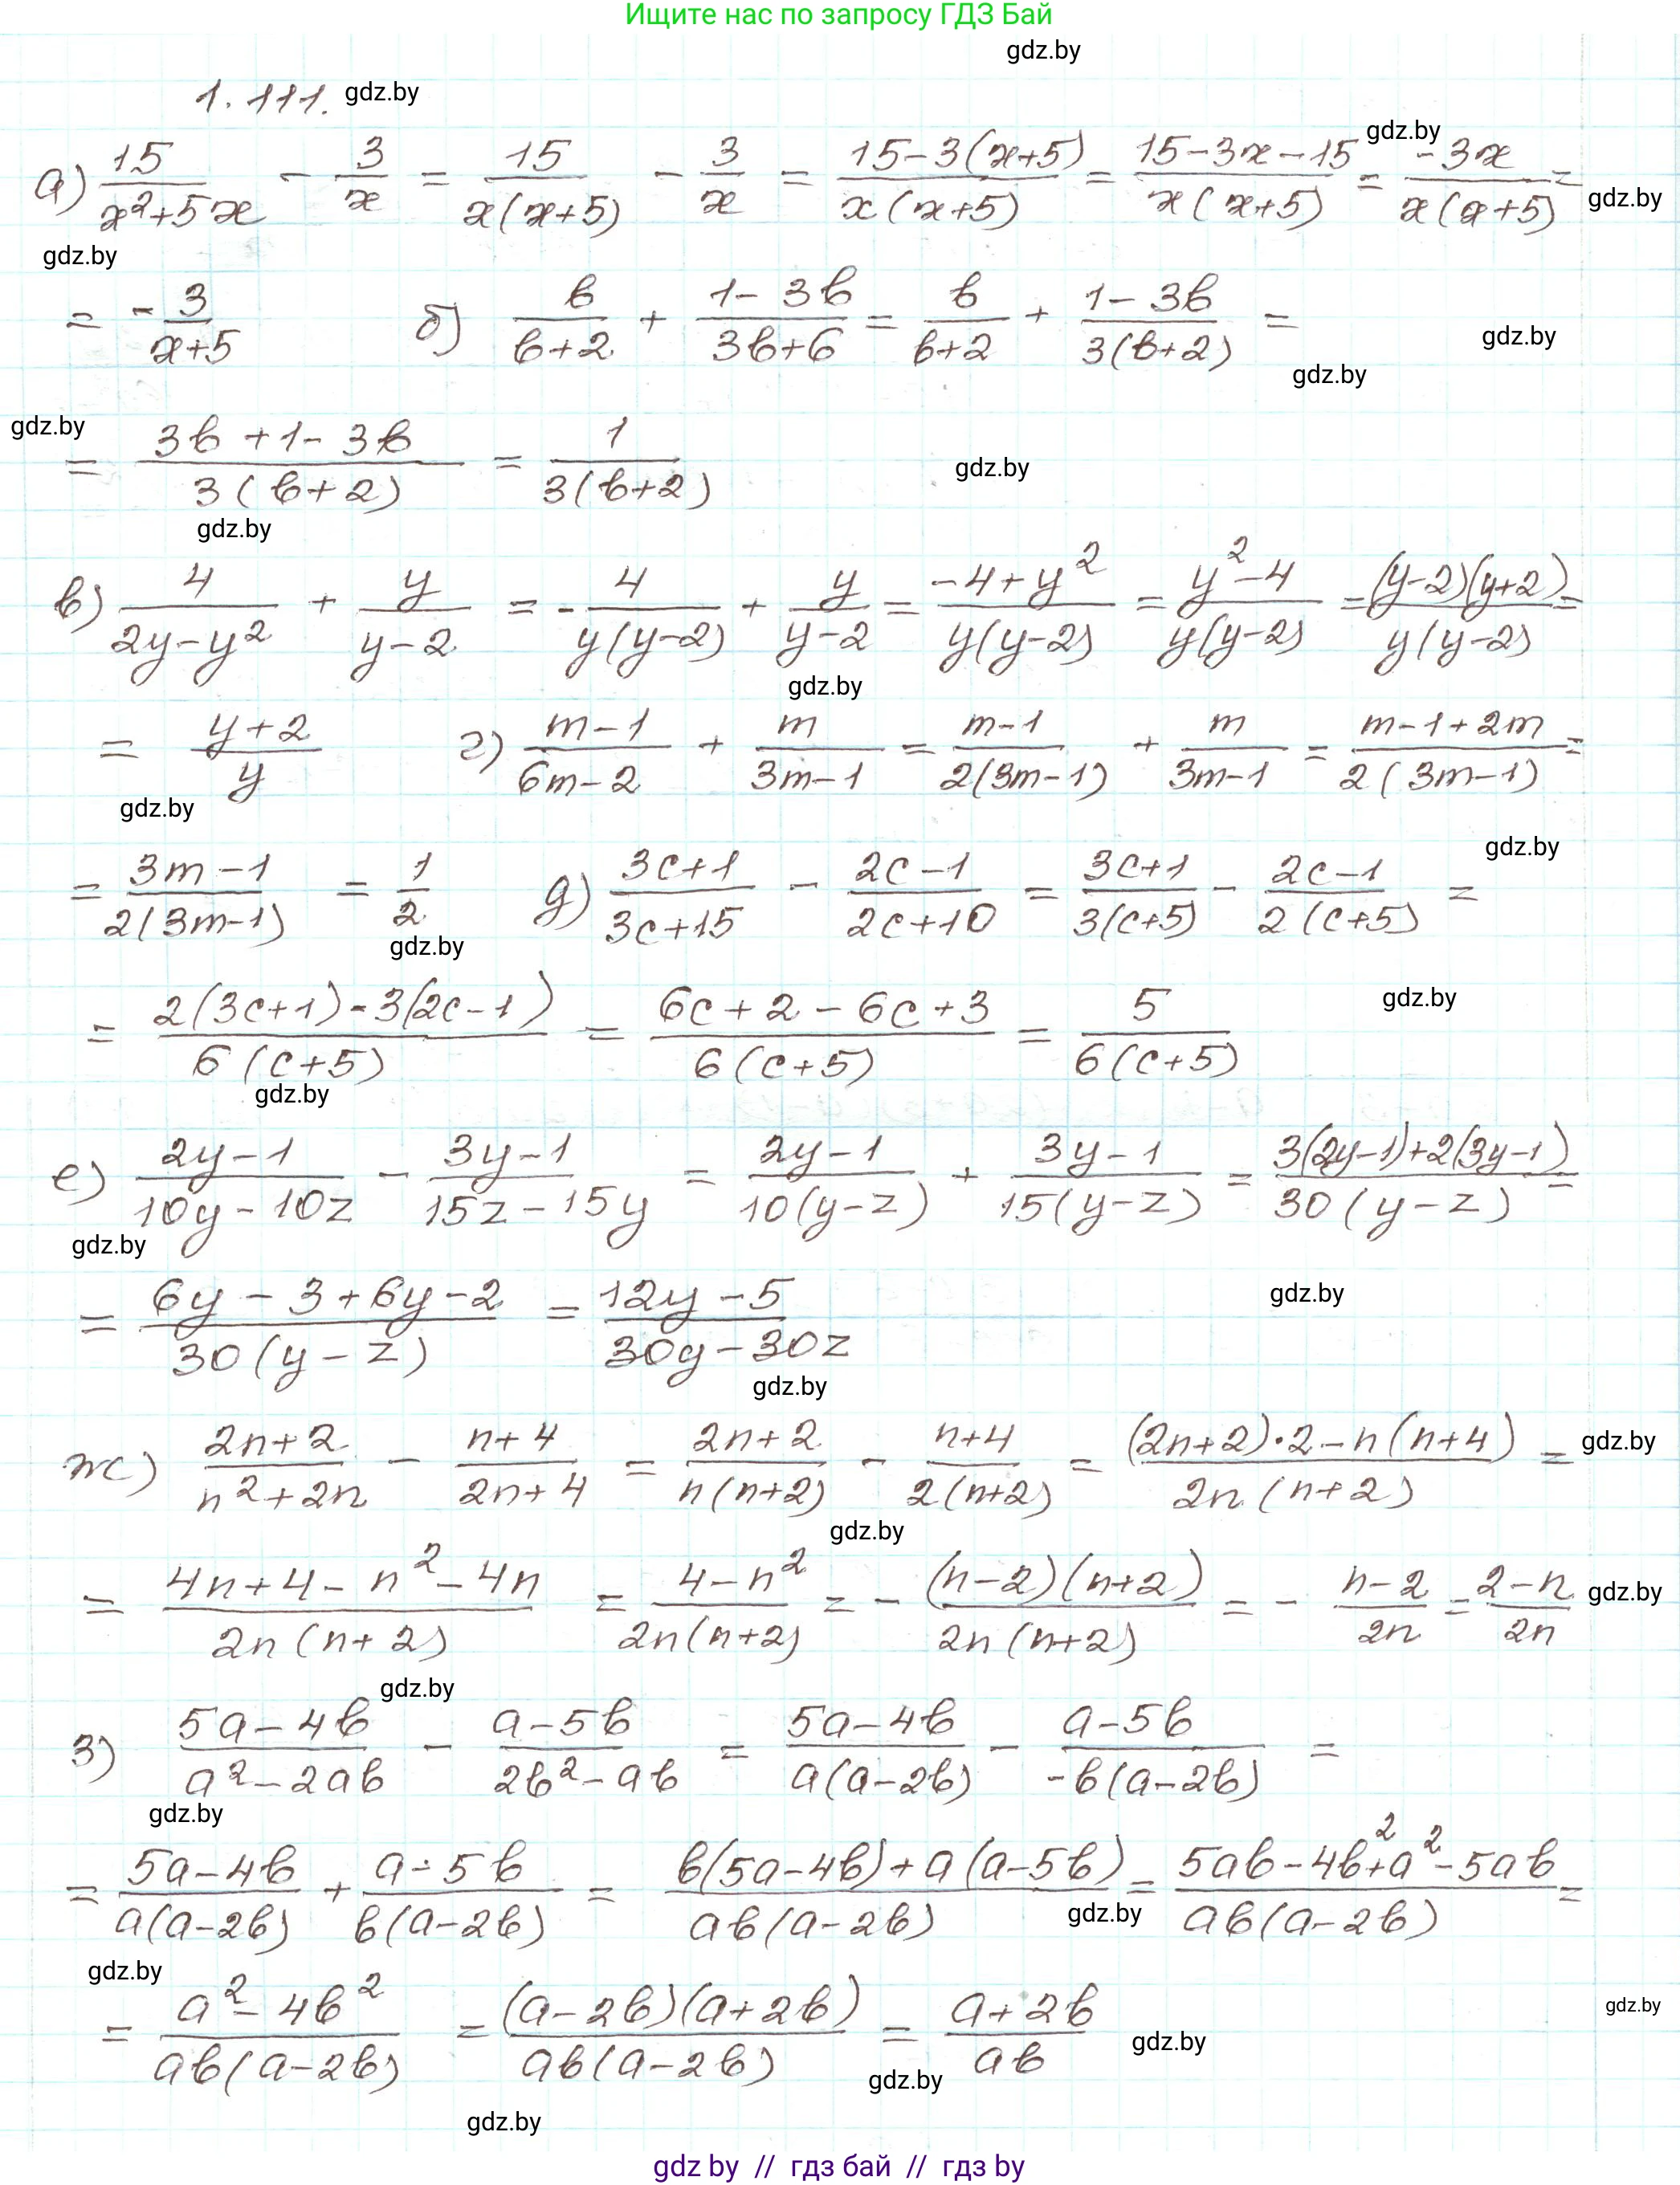 Ищите нас по запросу ГДЗ Бай
gdz.by
1.111. gdz.by
gdz.by
а) 15/(x²+5x) - 3/x = 15/(x(x+5)) - 3/x = (15-3(x+5))/(x(x+5)) = (15-3x-15)/(x(x+5)) = (-3x)/(x(x+5)) =
gdz.by
gdz.by
= -3/(x+5) б) b/(b+2) + (1-3b)/(3b+6) = b/(b+2) + (1-3b)/(3(b+2)) =
gdz.by
gdz.by
gdz.by
= (3b+1-3b)/(3(b+2)) = 1/(3(b+2))
gdz.by
gdz.by
в) 4/(2y-y²) + y/(y-2) = -4/(y(y-2)) + y/(y-2) = (-4+y²)/(y(y-2)) = (y²-4)/(y(y-2)) = ((y-2)(y+2))/(y(y-2)) =
gdz.by
= (y+2)/y г) (m-1)/(6m-2) + m/(3m-1) = (m-1)/(2(3m-1)) + m/(3m-1) = (m-1+2m)/(2(3m-1)) =
gdz.by
gdz.by
= (3m-1)/(2(3m-1)) = 1/2 д) (3c+1)/(3c+15) - (2c-1)/(2c+10) = (3c+1)/(3(c+5)) - (2c-1)/(2(c+5)) =
gdz.by
gdz.by
= (2(3c+1)-3(2c-1))/(6(c+5)) = (6c+2-6c+3)/(6(c+5)) = 5/(6(c+5))
gdz.by
е) (2y-1)/(10y-10z) - (3y-1)/(15z-15y) = (2y-1)/(10(y-z)) + (3y-1)/(15(y-z)) = (3(2y-1)+2(3y-1))/(30(y-z)) =
gdz.by
gdz.by
= (6y-3+6y-2)/(30(y-z)) = (12y-5)/(30y-30z)
gdz.by
ж) (2n+2)/(n²+2n) - (n+4)/(2n+4) = (2n+2)/(n(n+2)) - (n+4)/(2(n+2)) = ((2n+2)·2-n(n+4))/(2n(n+2)) =
gdz.by
gdz.by
= (4n+4-n²-4n)/(2n(n+2)) = (4-n²)/(2n(n+2)) = -((n-2)(n+2))/(2n(n+2)) = -(n-2)/2n = (2-n)/2n
gdz.by
gdz.by
з) (5a-4b)/(a²-2ab) - (a-5b)/(2b²-ab) = (5a-4b)/(a(a-2b)) - (a-5b)/(-b(a-2b)) =
gdz.by
= (5a-4b)/(a(a-2b)) + (a-5b)/(b(a-2b)) = (b(5a-4b)+a(a-5b))/(ab(a-2b)) = (5ab-4b²+a²-5ab)/(ab(a-2b)) =
gdz.by
gdz.by
= (a²-4b²)/(ab(a-2b)) = ((a-2b)(a+2b))/(ab(a-2b)) = (a+2b)/ab
gdz.by
gdz.by
gdz.by
gdz.by
gdz by // гдз бай // гдз by